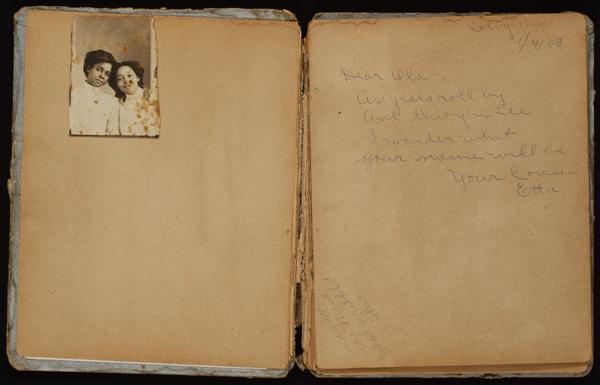 1/4/08
Dear Ula,
As years roll by
And this you see
I wonder what
your name will be
Your Cousin
Etta